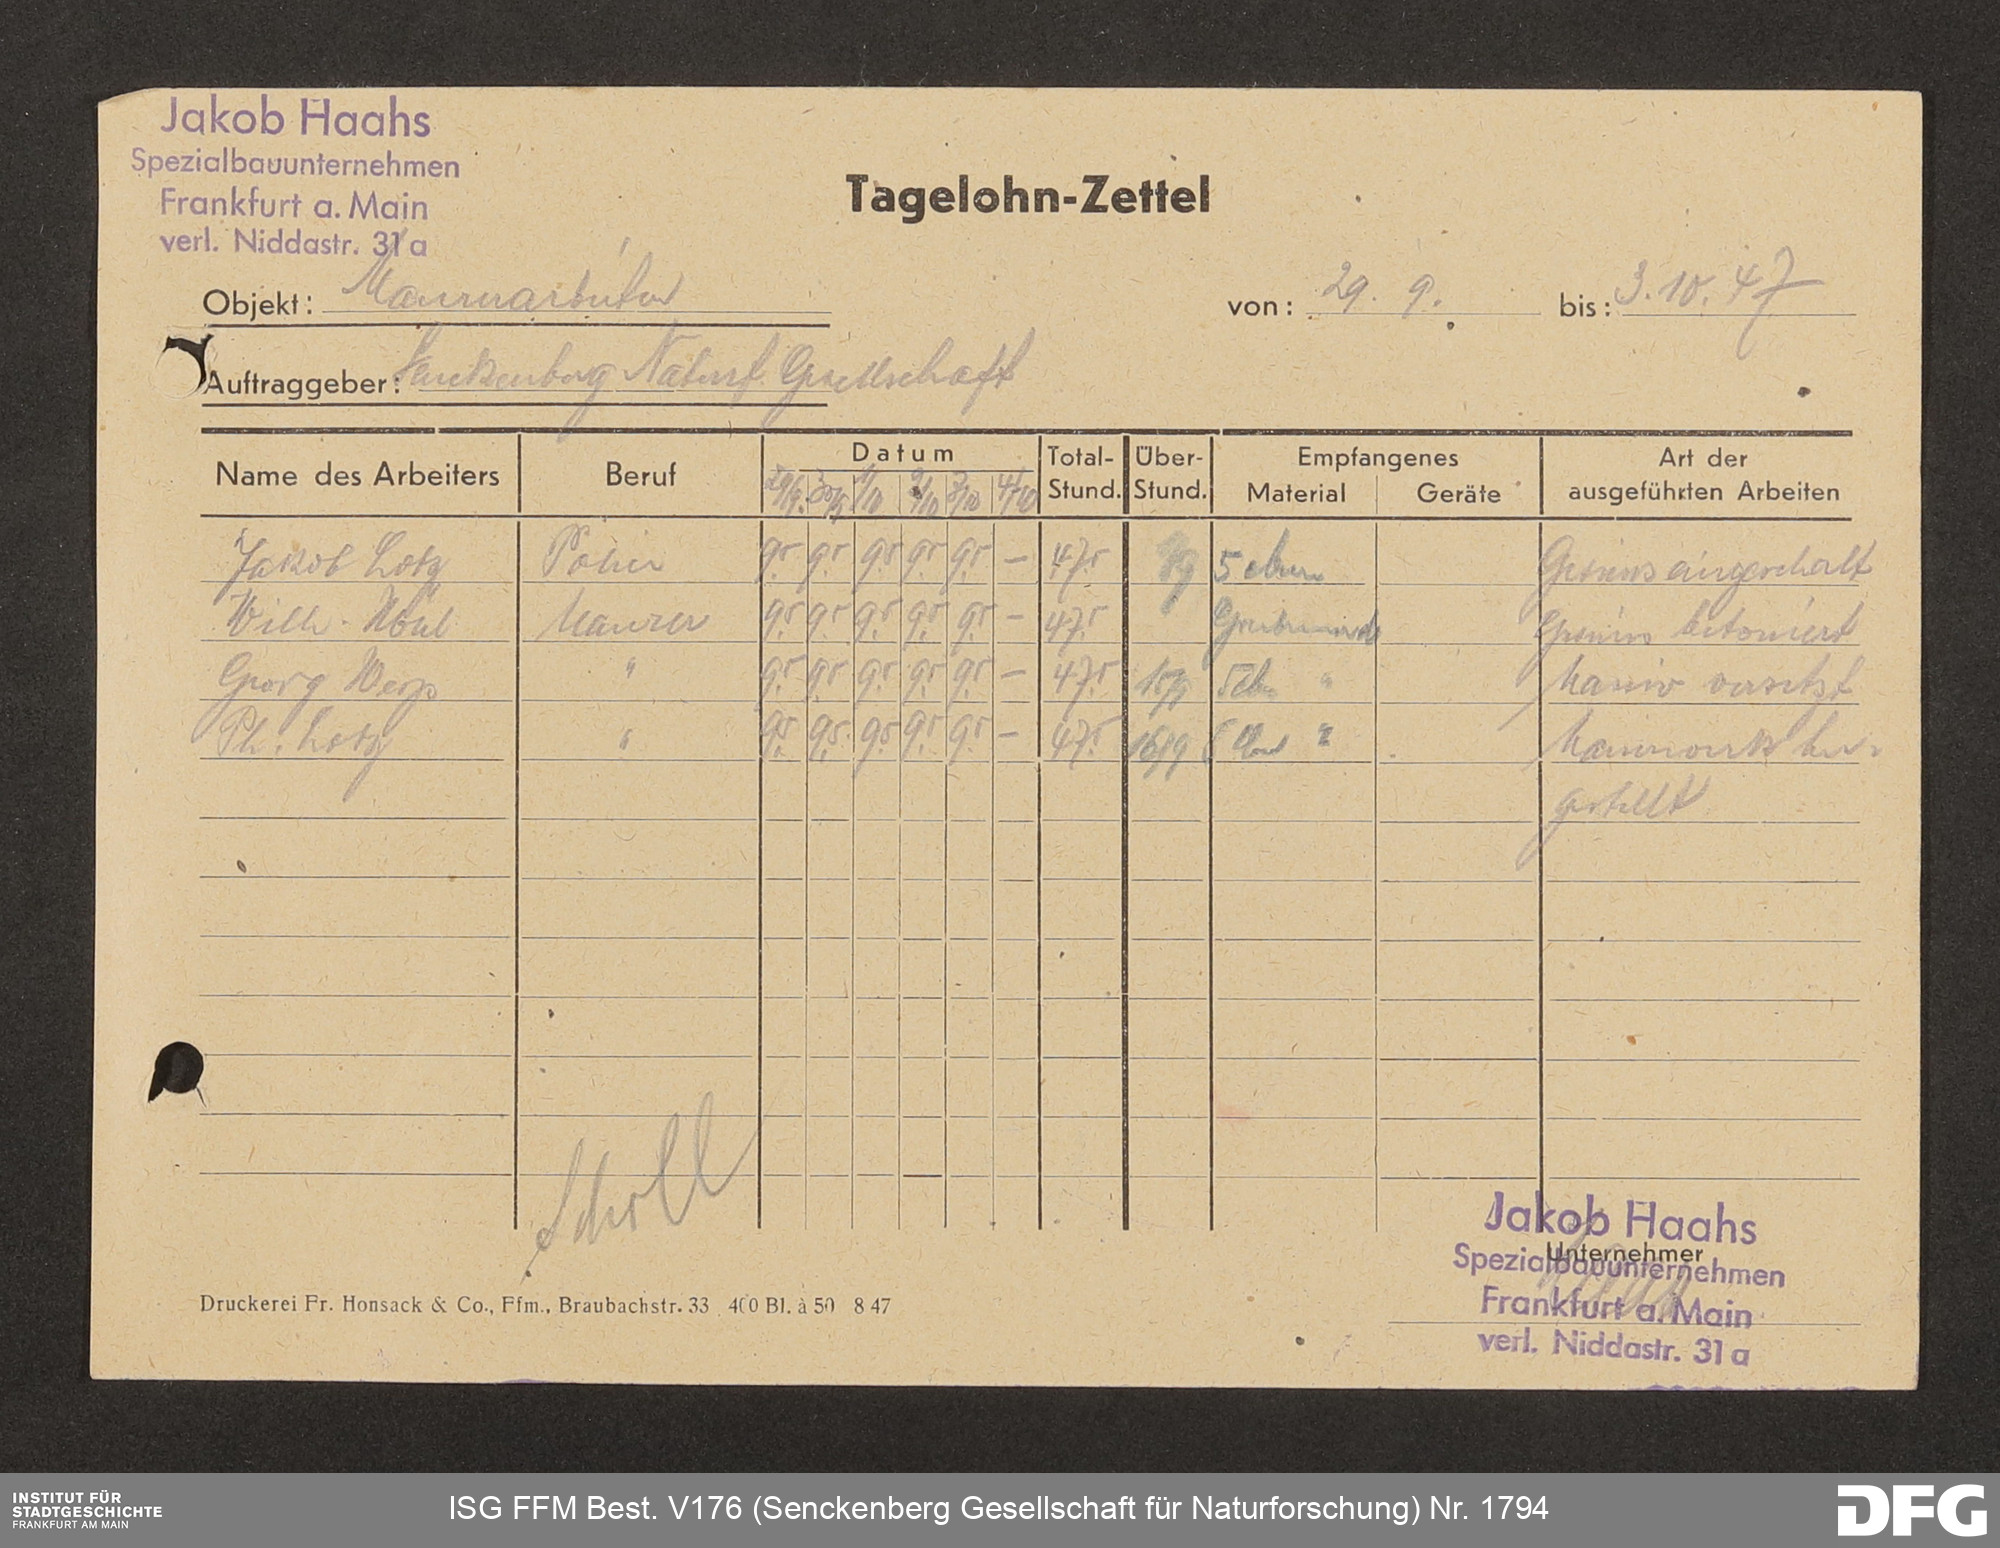 Jakob Haahs
Spezialbauunternehmen
Frankfurt a. Main
verl. Niddastr. 31 a
Tagelohn-Zettel
Objekt: Maurerarbeiten
von: 29. 9. bis: 3. 10. 47
Auftraggeber: Senckenberg Naturf. Gesellschaft
Name des Arbeiters Beruf Datum Total-Stund. Über-Stund. Empfangenes Material Geräte Art der ausgeführten Arbeiten
29/9. 30/9 1/10 2/10 3/10 4/10
Jakob Lotz Polier 9.5 9.5 9.5 9.5 9.5 – 47.5 5 Gesims eingeschalt
Wilh. Maurer 9.5 9.5 9.5 9.5 9.5 – 47.5 Gesims betoniert
Georg " 9.5 9.5 9.5 9.5 9.5 – 47.5 " versetzt
Ph. Lotz " 9.5 9.5 9.5 9.5 9.5 – 47.5 " Mauerwerk her-
gestellt
Scholl
Jakob Haahs
Unternehmer
Spezialbauunternehmen
Frankfurt a. Main
verl. Niddastr. 31 a
Druckerei Fr. Honsack & Co., Ffm., Braubachstr. 33 400 Bl. à 50 8 47
INSTITUT FÜR
STADTGESCHICHTE
FRANKFURT AM MAIN
ISG FFM Best. V176 (Senckenberg Gesellschaft für Naturforschung) Nr. 1794
DFG